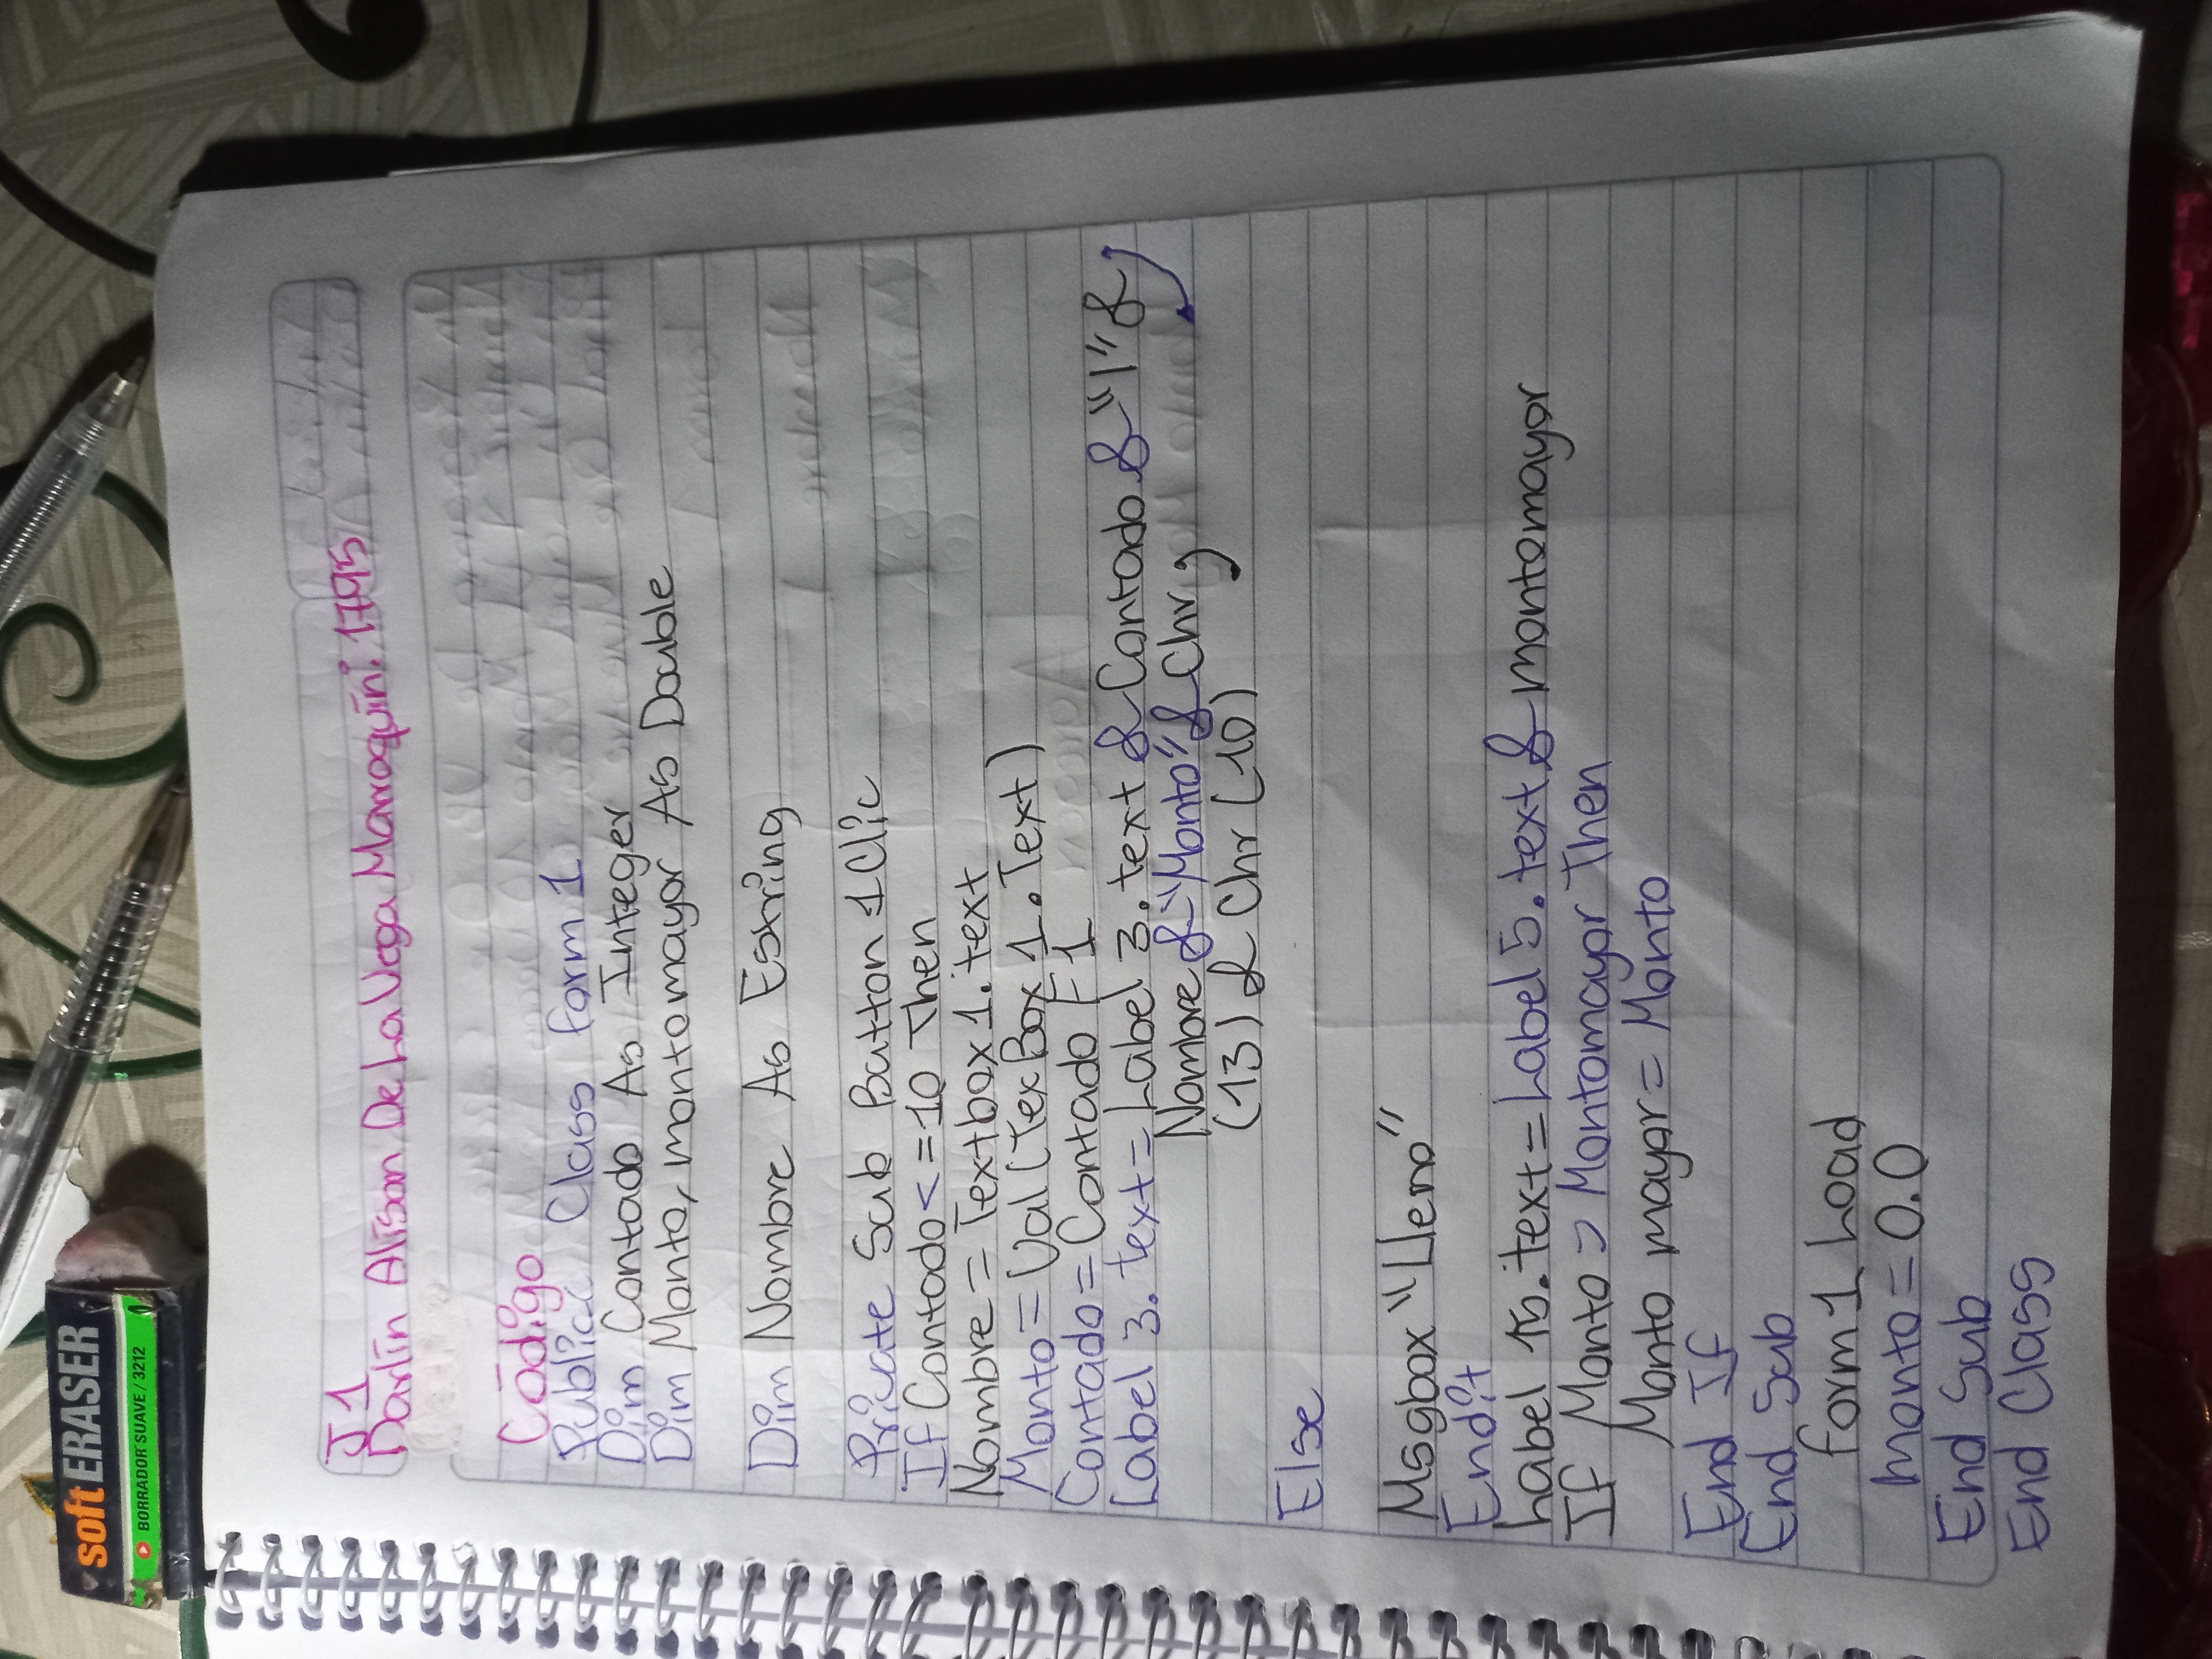 soft ERASER
BORRADOR SUAVE / 3212
J 1
Darlin Alison De La Vega Marroquín: 1795
Código
Public Class form 1
Dim Contado As Integer
Dim Monto, montomayor As Double
Dim Nombre As Estring
Private Sub Button 1 Clic
If Contado <= 10 Then
Nombre = Textbox 1. text
Monto = Val (TexBox 1. Text)
Contado = Contado F 1
Label 3. text = Label 3. text & Contado & "1" &
Nombre & "Monto" & Chr,
(13) & Chr (10)
Else
Msgbox "Lleno"
Endit
Label 15. text = Label 5. text & montomayor
If Monto > Montomayor Then
Monto mayor = Monto
End If
End Sub
form 1 Load
monto = 0.0
End Sub
End Class